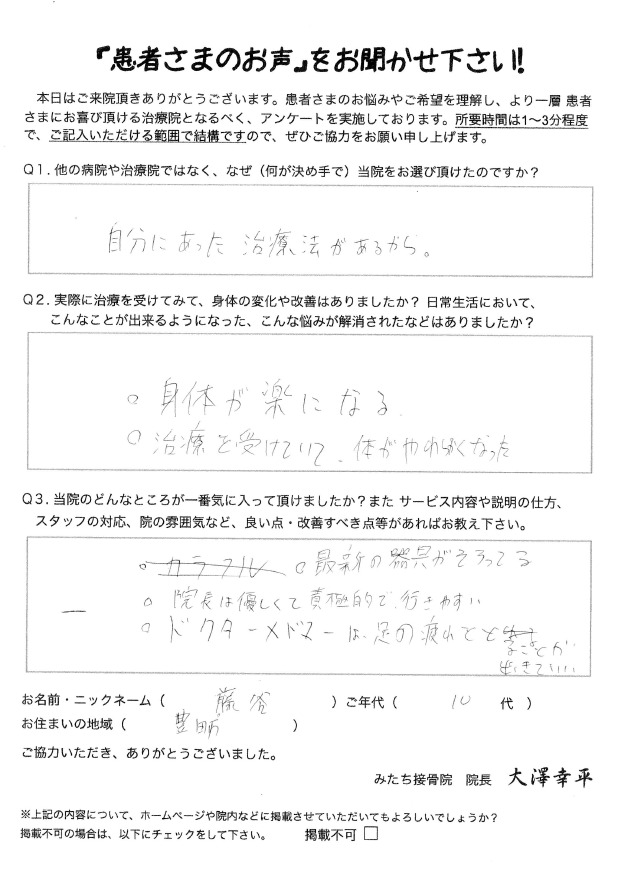 『患者さまのお声』をお聞かせ下さい！
本日はご来院頂きありがとうございます。患者さまのお悩みやご希望を理解し、より一層 患者
さまにお喜び頂ける治療院となるべく、アンケートを実施しております。所要時間は1〜3分程度
で、ご記入いただける範囲で結構ですので、ぜひご協力をお願い申し上げます。
Q1. 他の病院や治療院ではなく、なぜ（何が決め手で）当院をお選び頂けたのですか？
自分にあった 治療法があるから。
Q2. 実際に治療を受けてみて、身体の変化や改善はありましたか？ 日常生活において、
こんなことが出来るようになった、こんな悩みが解消されたなどはありましたか？
○ 身体が楽になる
○ 治療を受けていて、体がやわらかくなった
Q3. 当院のどんなところが一番気に入って頂けましたか？また サービス内容や説明の仕方、
スタッフの対応、院の雰囲気など、良い点・改善すべき点等があればお教え下さい。
○ カラフル ○ 最新の器具がそろってる
○ 院長は優しくて真極的で、行きやすい
○ ドクターメドマーは、足の疲れとと
ることが
できていい
お名前・ニックネーム（ 藤谷 ）ご年代（ 10 代 ）
お住まいの地域（ 豊明 ）
ご協力いただき、ありがとうございました。
みたち接骨院 院長 大澤幸平
※上記の内容について、ホームページや院内などに掲載させていただいてもよろしいでしょうか？
掲載不可の場合は、以下にチェックをして下さい。 掲載不可 □